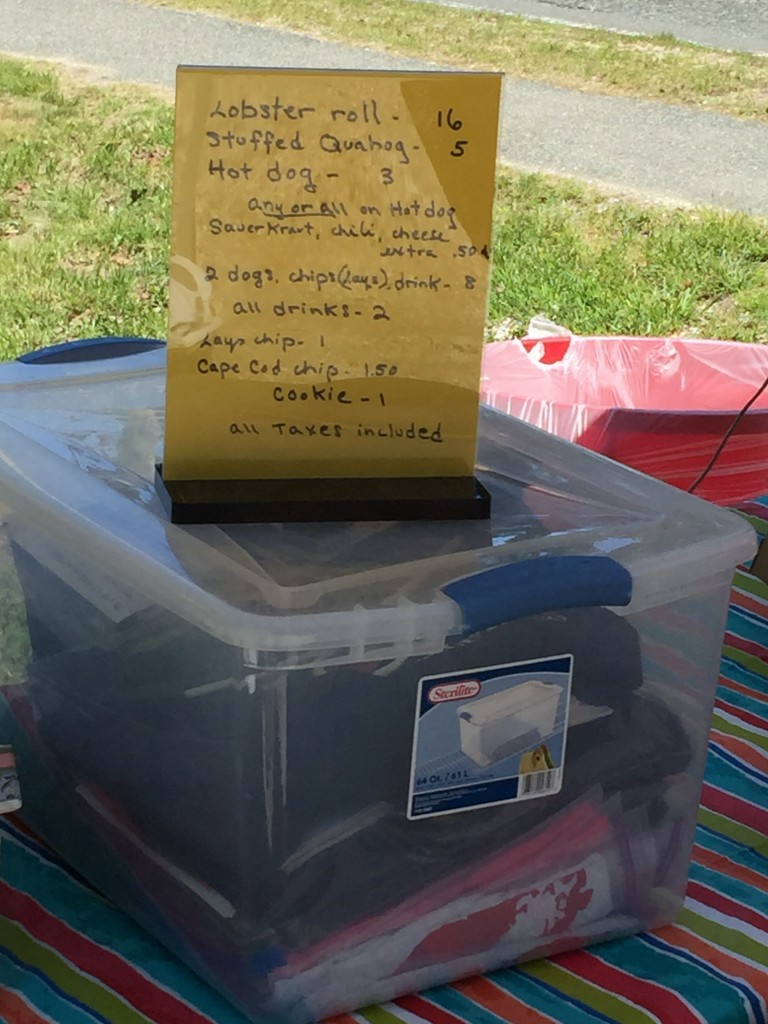 Lobster roll - 16
Stuffed Quahog - 5
Hot dog - 3
any or all on Hot dog
Sauerkraut, chili, cheese
extra .50
2 dogs, chips (lays), drink - 8
all drinks - 2
Lays chip - 1
Cape Cod chip - 1.50
Cookie - 1
all Taxes included
Sterilite
64 Qt. / 61 L